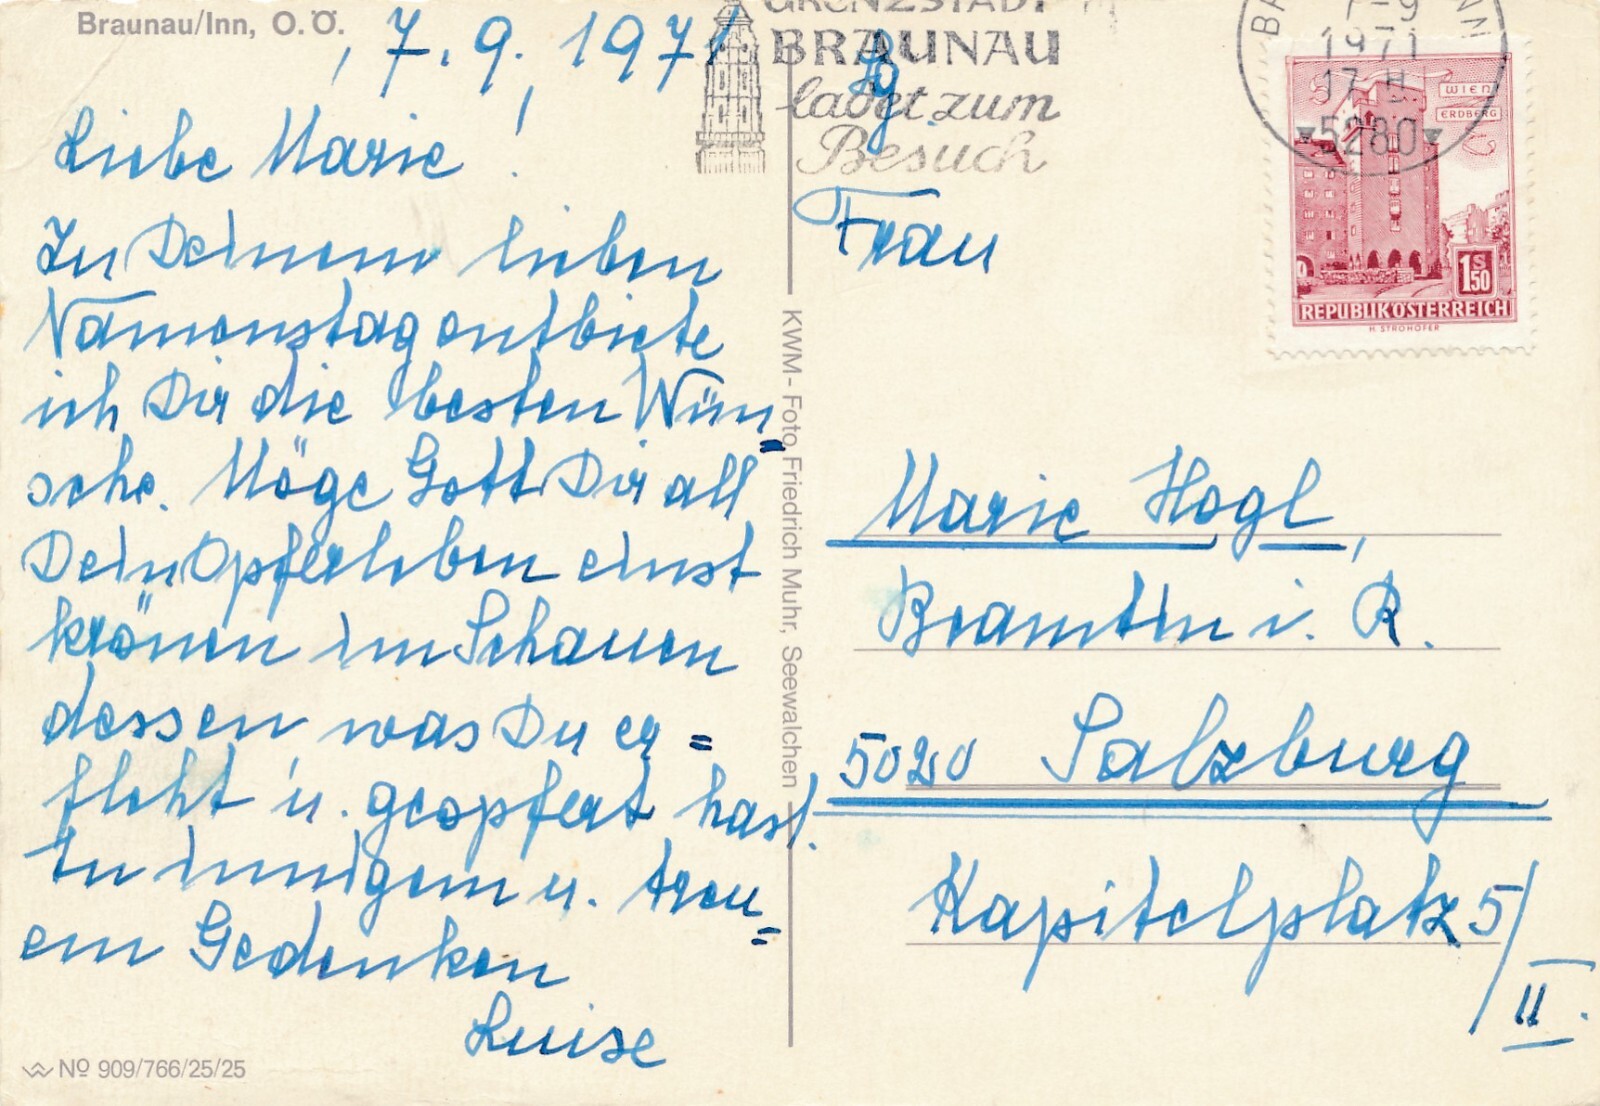 Braunau/Inn, O.Ö.
, 7.9.1971
Liebe Marie!
Zu Deinem lieben
Namenstag entbiete
ich Dir die besten Wün-
sche. Möge Gott Dir all
Dein Opferleben einst
krönen im Schauen
dessen was Du er=
fleht u. geopfert hast.
In innigem u. treu=
em Gedenken
Luise
Nº 909/766/25/25
KWM - Foto Friedrich Muhr, Seewalchen
GRENZSTADT
BRAUNAU
ladet zum
Besuch
INN
7-9
1971
17 H
5280
WIEN
ERDBERG
1 S 50
REPUBLIK ÖSTERREICH
H. STROHOFER
Frau
Marie Hogl,
Beamtin i. R.
5020 Salzburg
Kapitelplatz 5/
II.